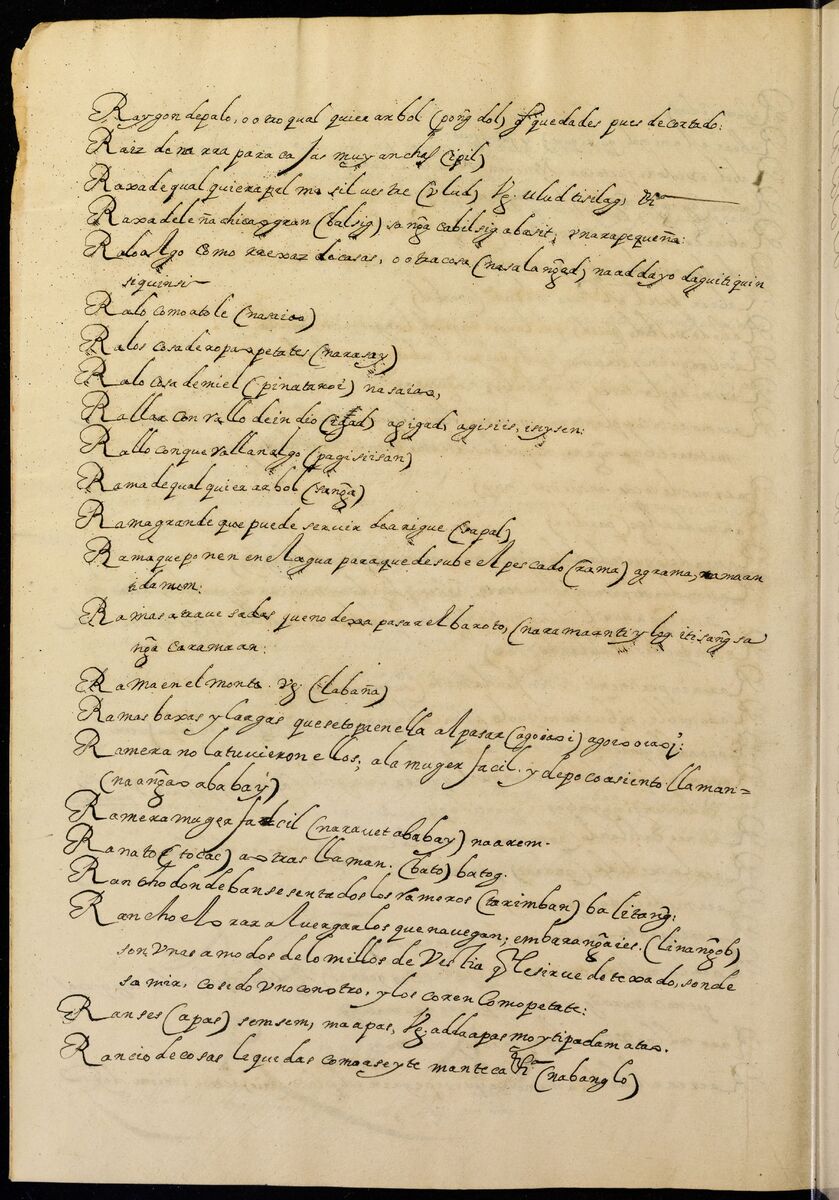 Raygon depalo, o otro qual quier arbol (pong̃ dol) q̃ queda despues decortado:
Raiz de narra para ca sas muy anchas (ipil)
Raxa de qual quiera pal mo silvestre (vlud) Vg. ulud ti silag,
Raxa de leña chica o gran (balsig) sang̃a cabilsig abasit; vna rapequeña:
Ralo Algo como rrexaz de casas, o otra cosa (nasalang̃ad) naaddayo daguitiquin
siquinsi
Ralo como atole (nasaiao)
Ralos cosa de ropa o petates (narasay)
Ralo cosa de miel (pinataroi) nasaiao,
Rallar con rallo de indio (igad) agigad, agisiis, isiysen:
Rallo con que rallan algo (pagisiisan)
Rama de qual quier arbol (sang̃a)
Rama grande que puede servir de arigue (sapal)
Rama que ponen en el Agua para que de sube el pescado (rama) agrama, ramaan
idamon:
Ramas atrave sadas que no dexa pasar el baroto, (naramaonti y log iti sang̃sa
ng̃a caramaan:
Rama en el monte. Vg. (labaña)
Ramas baxas y largas que se topa en ella al pasar (agoiaoi)
Ramera no la tuvieron ellos; a la muger facil. y de poco asiento llaman=
(naang̃ao ababay)
Ramera muger facil (naravet ababay) naarem.
Ranato (tocac) a otras llaman. (bato) batog.
Rancho donde ban sesentados los rameros (tarimban) balitang̃:
Rancho el para Alvergar los que navegan; embarang̃aies. (linang̃ob)
son vnas a modos de lo millos de Vestia q̃ le sirve de texado, son de
samir, cosedo vno con otro, y los coren Como petate:
Ranses (apas) semsem, maapas, Vg. addaapas moytipadamatao.
Rancio de cosas le que das como aseyte manteca (nabanglo)